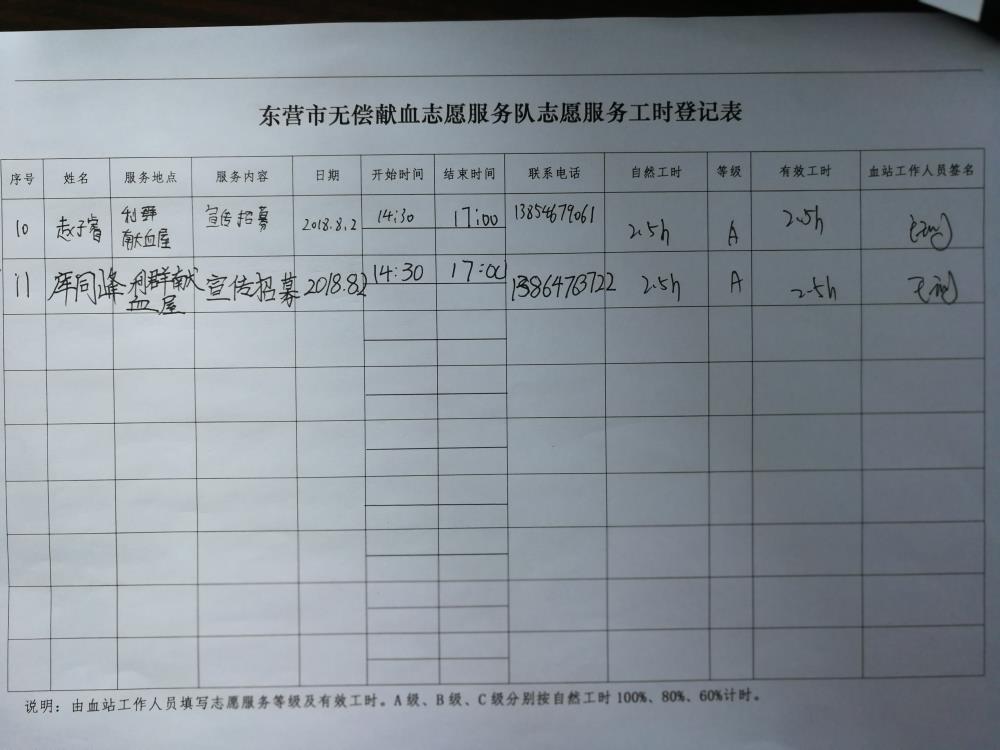 东营市无偿献血志愿服务队志愿服务工时登记表
序号 姓名 服务地点 服务内容 日期 开始时间 结束时间 联系电话 自然工时 等级 有效工时 血站工作人员签名
10 赵子睿 利群 宣传招募 2018.8.2 14:30 17:00 13854679061 2.5h A 2.5h
献血屋
11 同峰 利群献 宣传招募 2018.8.2 14:30 17:00 13864763722 2.5h A 2.5h
血屋
说明：由血站工作人员填写志愿服务等级及有效工时。A级、B级、C级分别按自然工时100%、80%、60%计时。